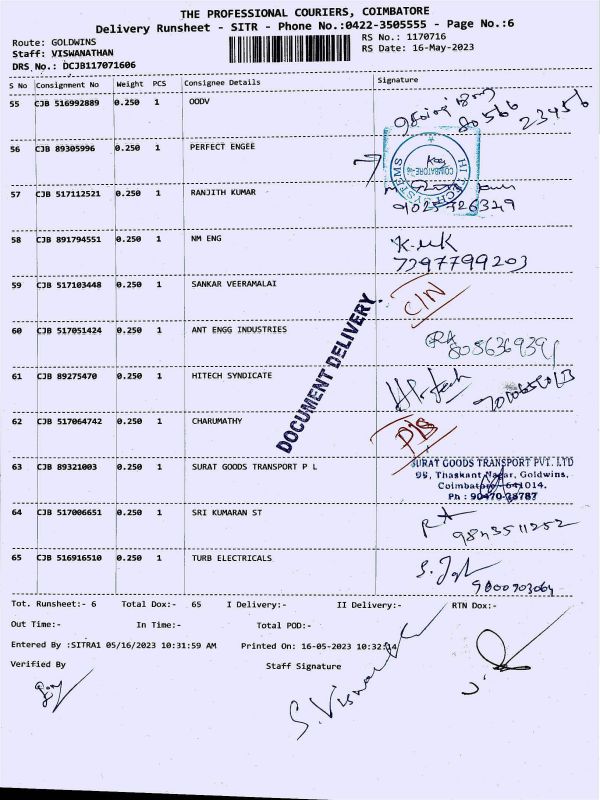 THE PROFESSIONAL COURIERS, COIMBATORE
Delivery Runsheet - SITR - Phone No.:0422-3505555 - Page No.:6
Route: GOLDWINS
RS No.: 1170716
Staff: VISWANATHAN
RS Date: 16-May-2023
DRS No.: DCJB117071606
S No Consignment No Weight PCS Consignee Details Signature
55 CJB 516992889 0.250 1 OODV
80566 23456
56 CJB 89305996 0.250 1 PERFECT ENGEE
HI TECH SYSTEMS
COIMBATORE
57 CJB 517112521 0.250 1 RANJITH KUMAR
9025726349
58 CJB 891794551 0.250 1 NM ENG
7397799203
59 CJB 517103448 0.250 1 SANKAR VEERAMALAI C/N
60 CJB 517051424 0.250 1 ANT ENGG INDUSTRIES
61 CJB 89275470 0.250 1 HITECH SYNDICATE
DOCUMENT DELIVERY.
62 CJB 517064742 0.250 1 CHARUMATHY
63 CJB 89321003 0.250 1 SURAT GOODS TRANSPORT P L
SURAT GOODS TRANSPORT PVT. LTD
Nagar, Goldwins,
Coimbatore - 641014.
Ph : 90470-38787
64 CJB 517006651 0.250 1 SRI KUMARAN ST
9843511252
65 CJB 516916510 0.250 1 TURB ELECTRICALS
9800903064
Tot. Runsheet:- 6 Total Dox:- 65 I Delivery:- II Delivery:- RTN Dox:-
Out Time:- In Time:- Total POD:-
Entered By :SITRA1 05/16/2023 10:31:59 AM Printed On: 16-05-2023 10:32:14
Verified By Staff Signature